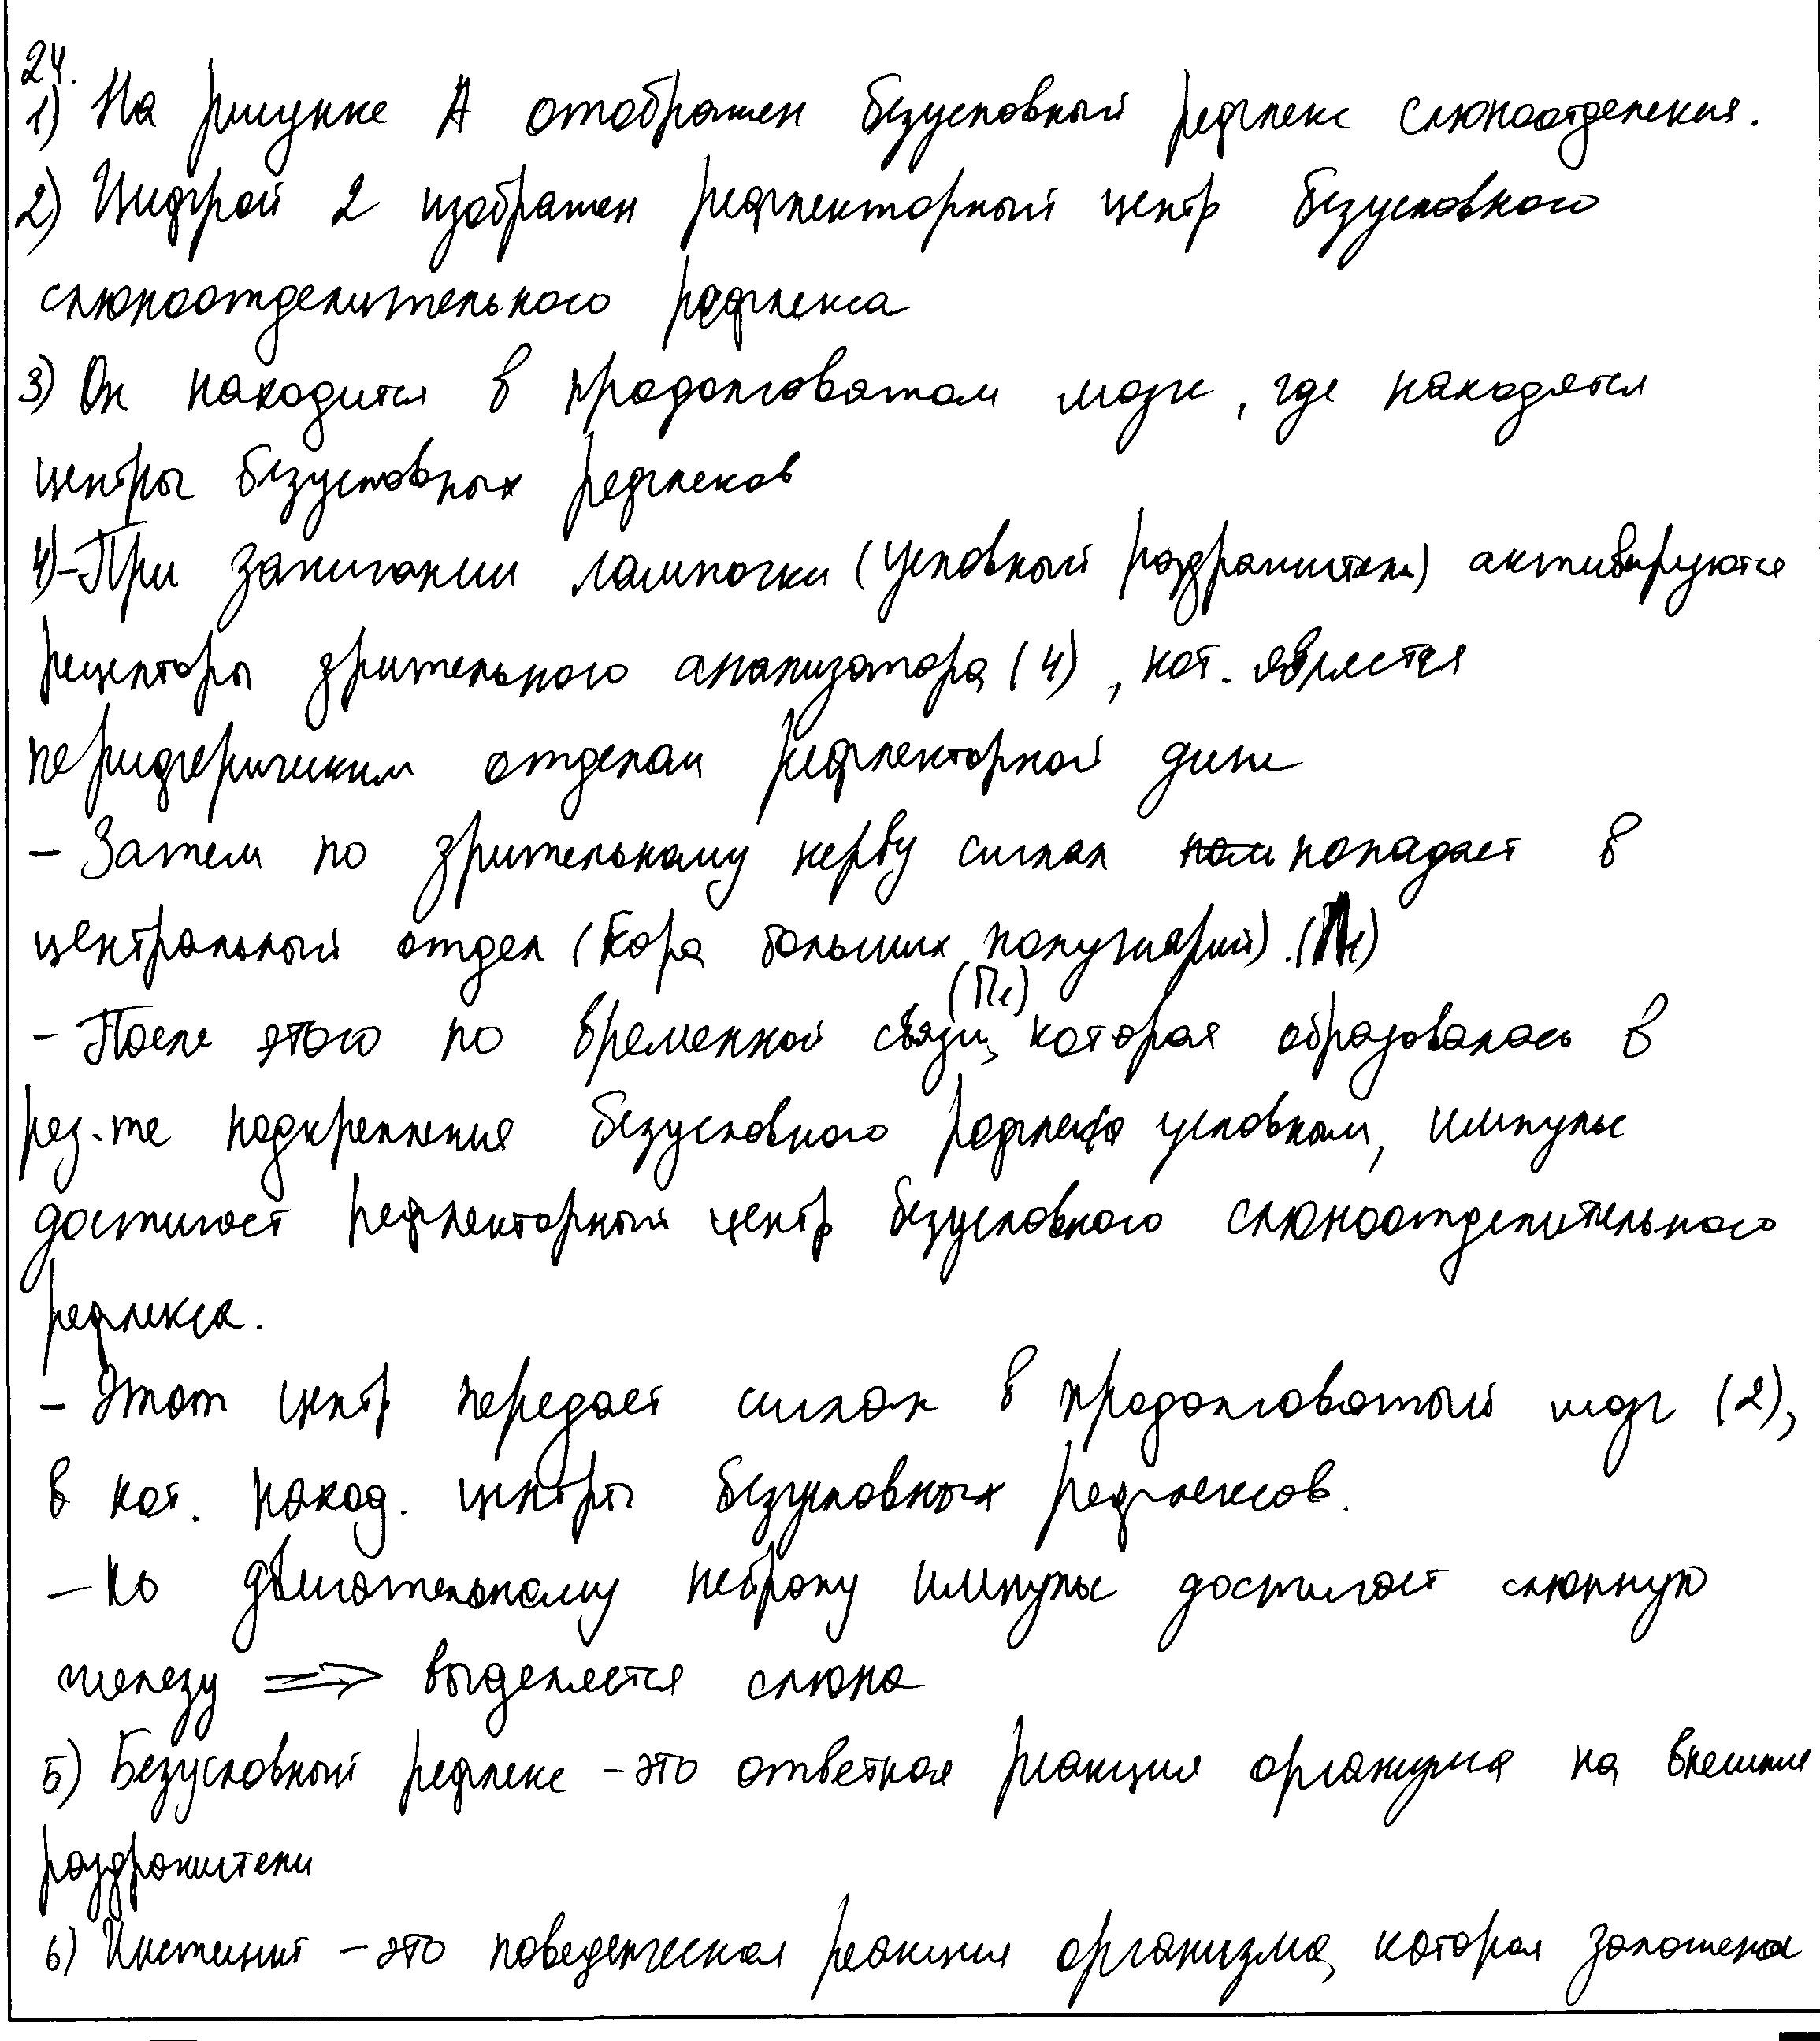 24.
1) На рисунке А отображен безусловный рефлекс слюноотделения.
2) Цифрой 2 изображен рефлекторный центр безусловного
слюноотделительного рефлекса
3) Он находится в продолговатом мозге, где находятся
центры безусловных рефлексов
4) - При зажигании лампочки (условный раздражитель) активируются
рецепторы зрительного анализатора (4), кот. является
периферическим отделом рефлекторной дуги
- Затем по зрительному нерву сигнал попадает в
центральный отдел (кора больших полушарий).
(П1)
- После этого по временной связи, которая образовалась в
рез-те подкрепления безусловного рефлекса условным, импульс
достигает рефлекторный центр безусловного слюноотделительного
рефлекса.
- Этот центр передает сигнал в продолговатый мозг (2),
в кот. наход. центры безусловных рефлексов.
- по двигательному нейрону импульс достигает слюнную
железу => выделяется слюна
5) Безусловный рефлекс - это ответная реакция организма на внешние
раздражители
6) Инстинкт - это поведенческая реакция организма, которая заложена